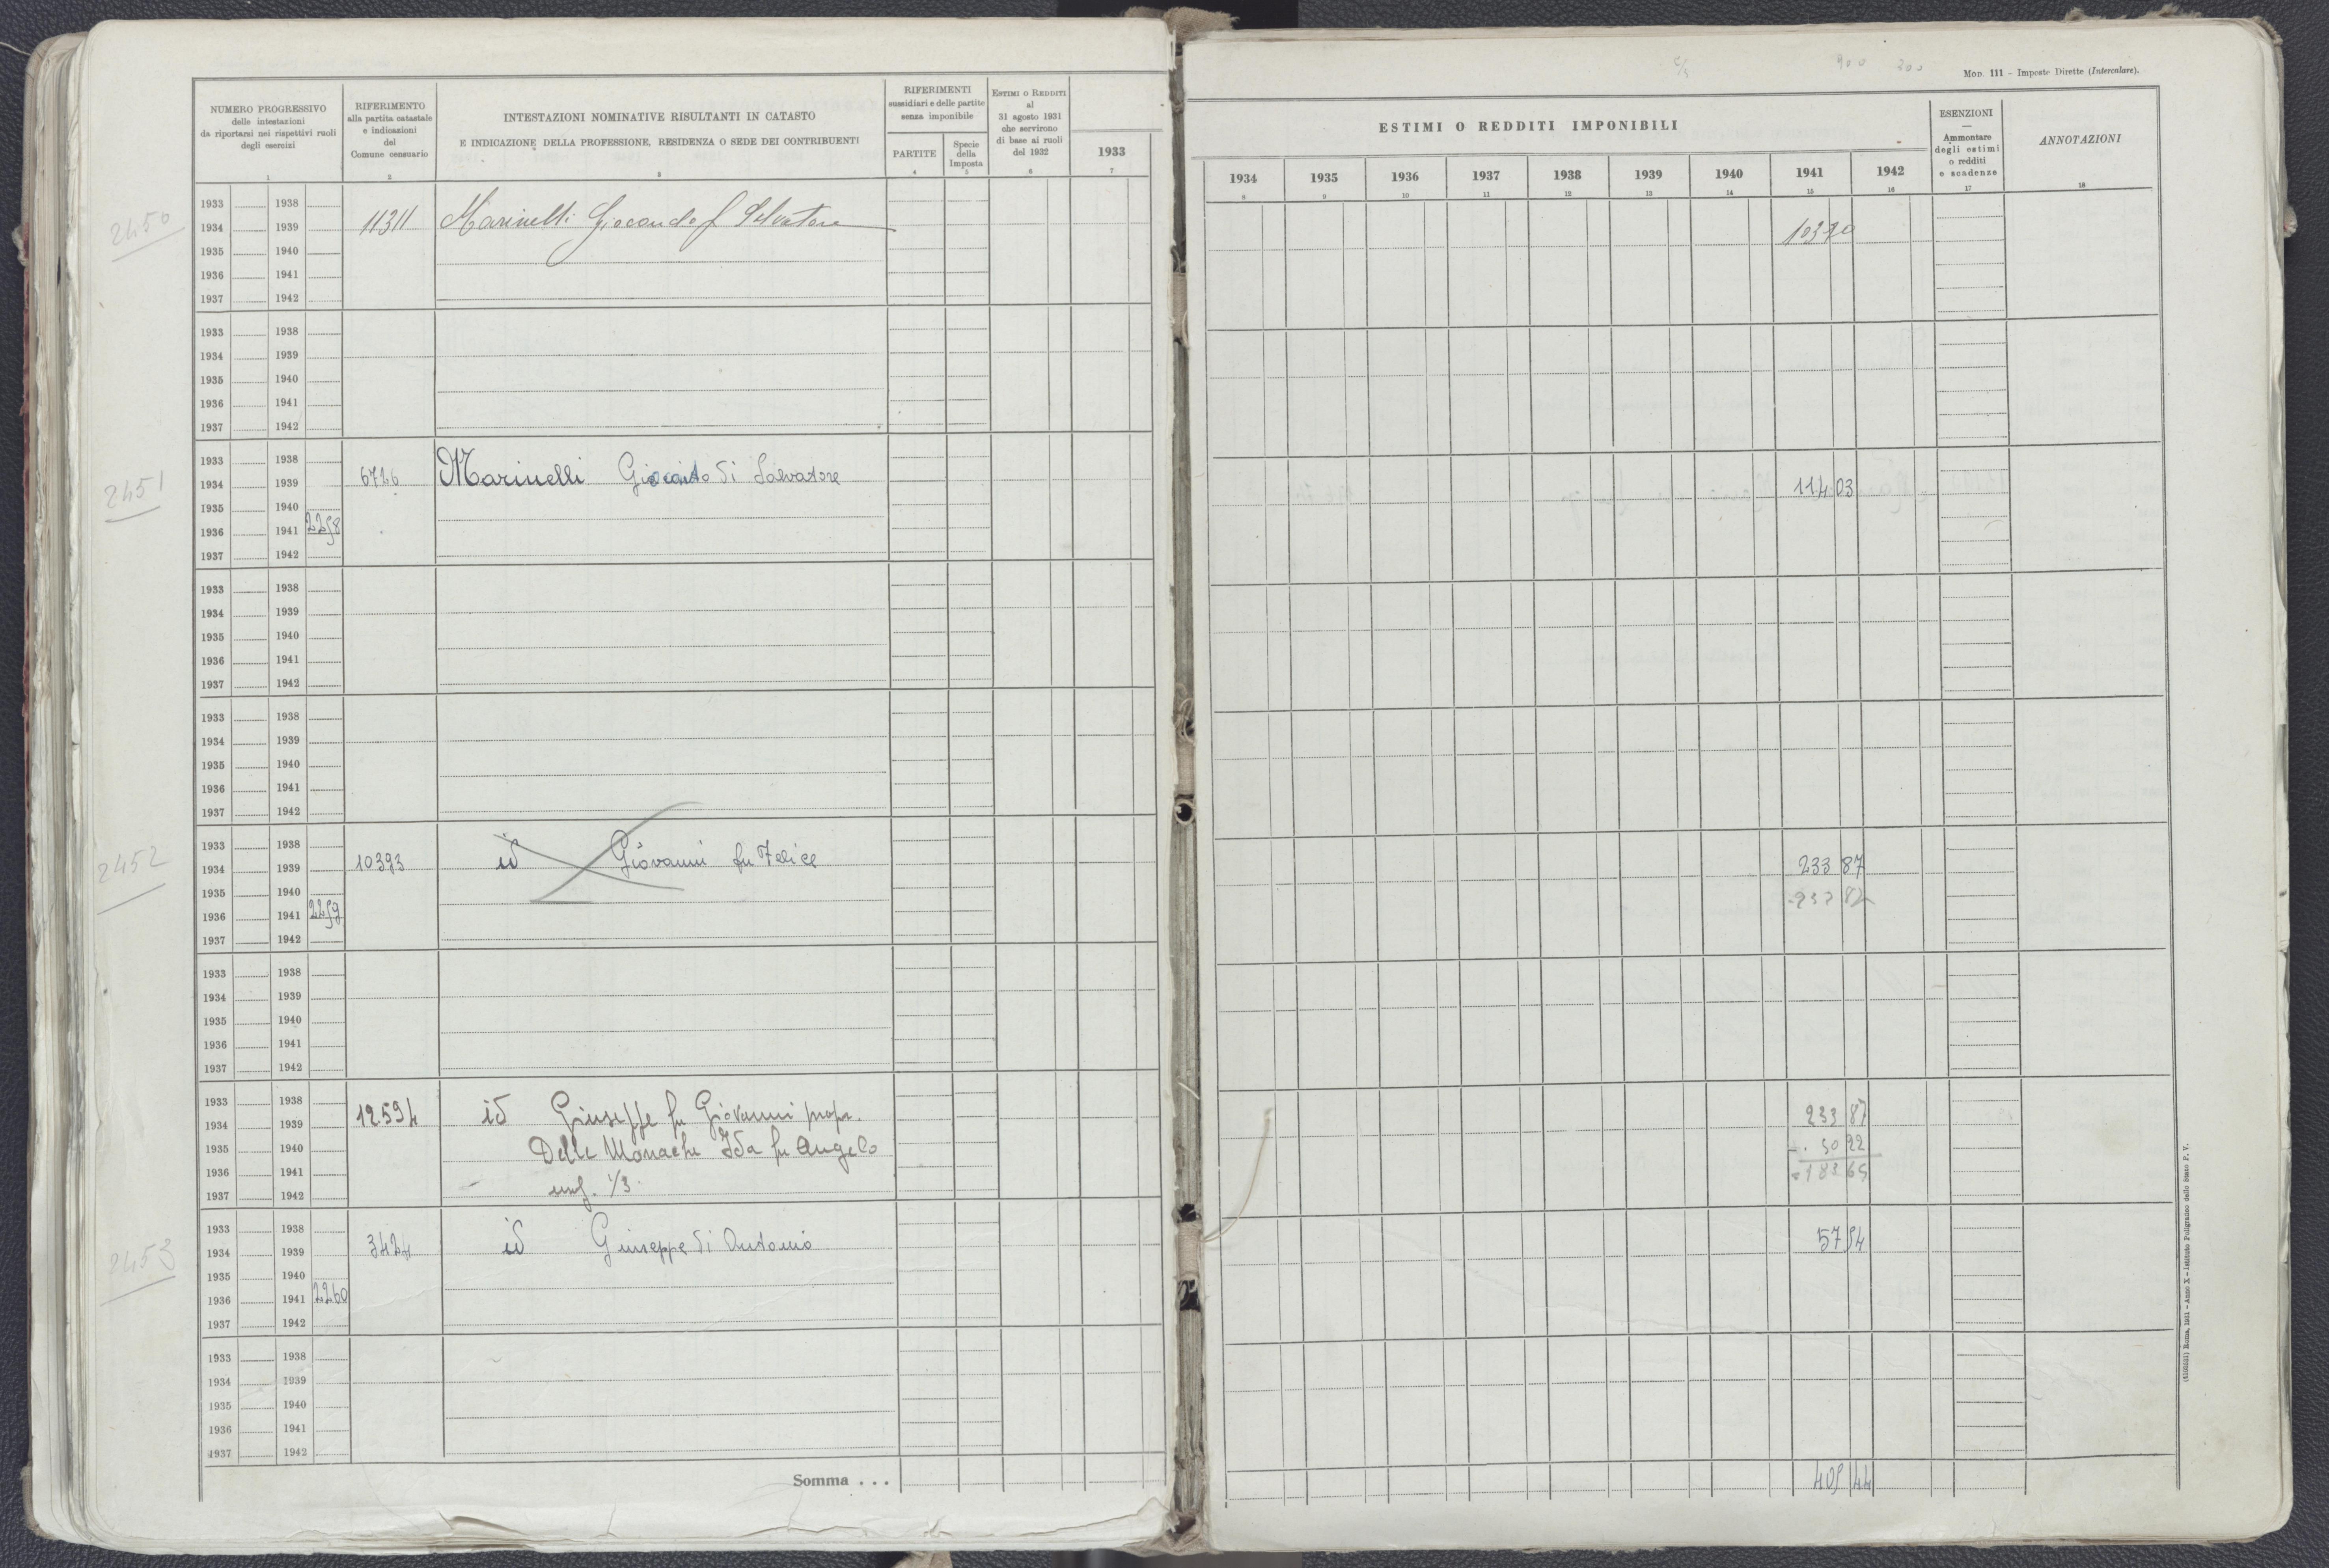 Mod. 111 – Imposte Dirette (Intercalare).
900 200
NUMERO PROGRESSIVO
delle intestazioni
da riportarsi nei rispettivi ruoli
degli esercizi
1
RIFERIMENTO
alla partita catastale
e indicazioni
del
Comune censuario
2
INTESTAZIONI NOMINATIVE RISULTANTI IN CATASTO
E INDICAZIONE DELLA PROFESSIONE, RESIDENZA O SEDE DEI CONTRIBUENTI
3
RIFERIMENTI
sussidiari e delle partite
senza imponibile
PARTITE
4
Specie
della
Imposta
5
ESTIMI O REDDITI
al
31 agosto 1931
che servirono
di base ai ruoli
del 1932
6
1933
7
ESTIMI O REDDITI IMPONIBILI
1934 1935 1936 1937 1938 1939 1940 1941 1942
8 9 10 11 12 13 14 15 16
ESENZIONI
—
Ammontare
degli estimi
o redditi
e scadenze
17
ANNOTAZIONI
18
2450
1933 1938
1934 1939 11311 Marinelli Giocondo f Salvatore
1935 1940
1936 1941
1937 1942
1933 1938
1934 1939
1935 1940
1936 1941
1937 1942
2451
1933 1938
1934 1939 6726 Marinelli Giacinto di Salvatore 114 03
1935 1940
1936 1941 2258
1937 1942
1933 1938
1934 1939
1935 1940
1936 1941
1937 1942
1933 1938
1934 1939
1935 1940
1936 1941
1937 1942
2452
1933 1938
1934 1939 10393 id Giovanni fu Felice 233 87
1935 1940
1936 1941 2259
1937 1942
1933 1938
1934 1939
1935 1940
1936 1941
1937 1942
1933 1938
1934 1939 12594 id Giuseppe fu Giovanni propr. 233 87
1935 1940 Delle Monache Ida fu Angelo - 50 22
1936 1941 = 183 65
1937 1942 usuf. 1/3
2453
1933 1938
1934 1939 3424 id Giuseppe di Antonio 57 54
1935 1940
1936 1941 2260
1937 1942
1933 1938
1934 1939
1935 1940
1936 1941
1937 1942
Somma . . . 405 44
Roma, 1931 – Anno X – Istituto Poligrafico dello Stato P. V.